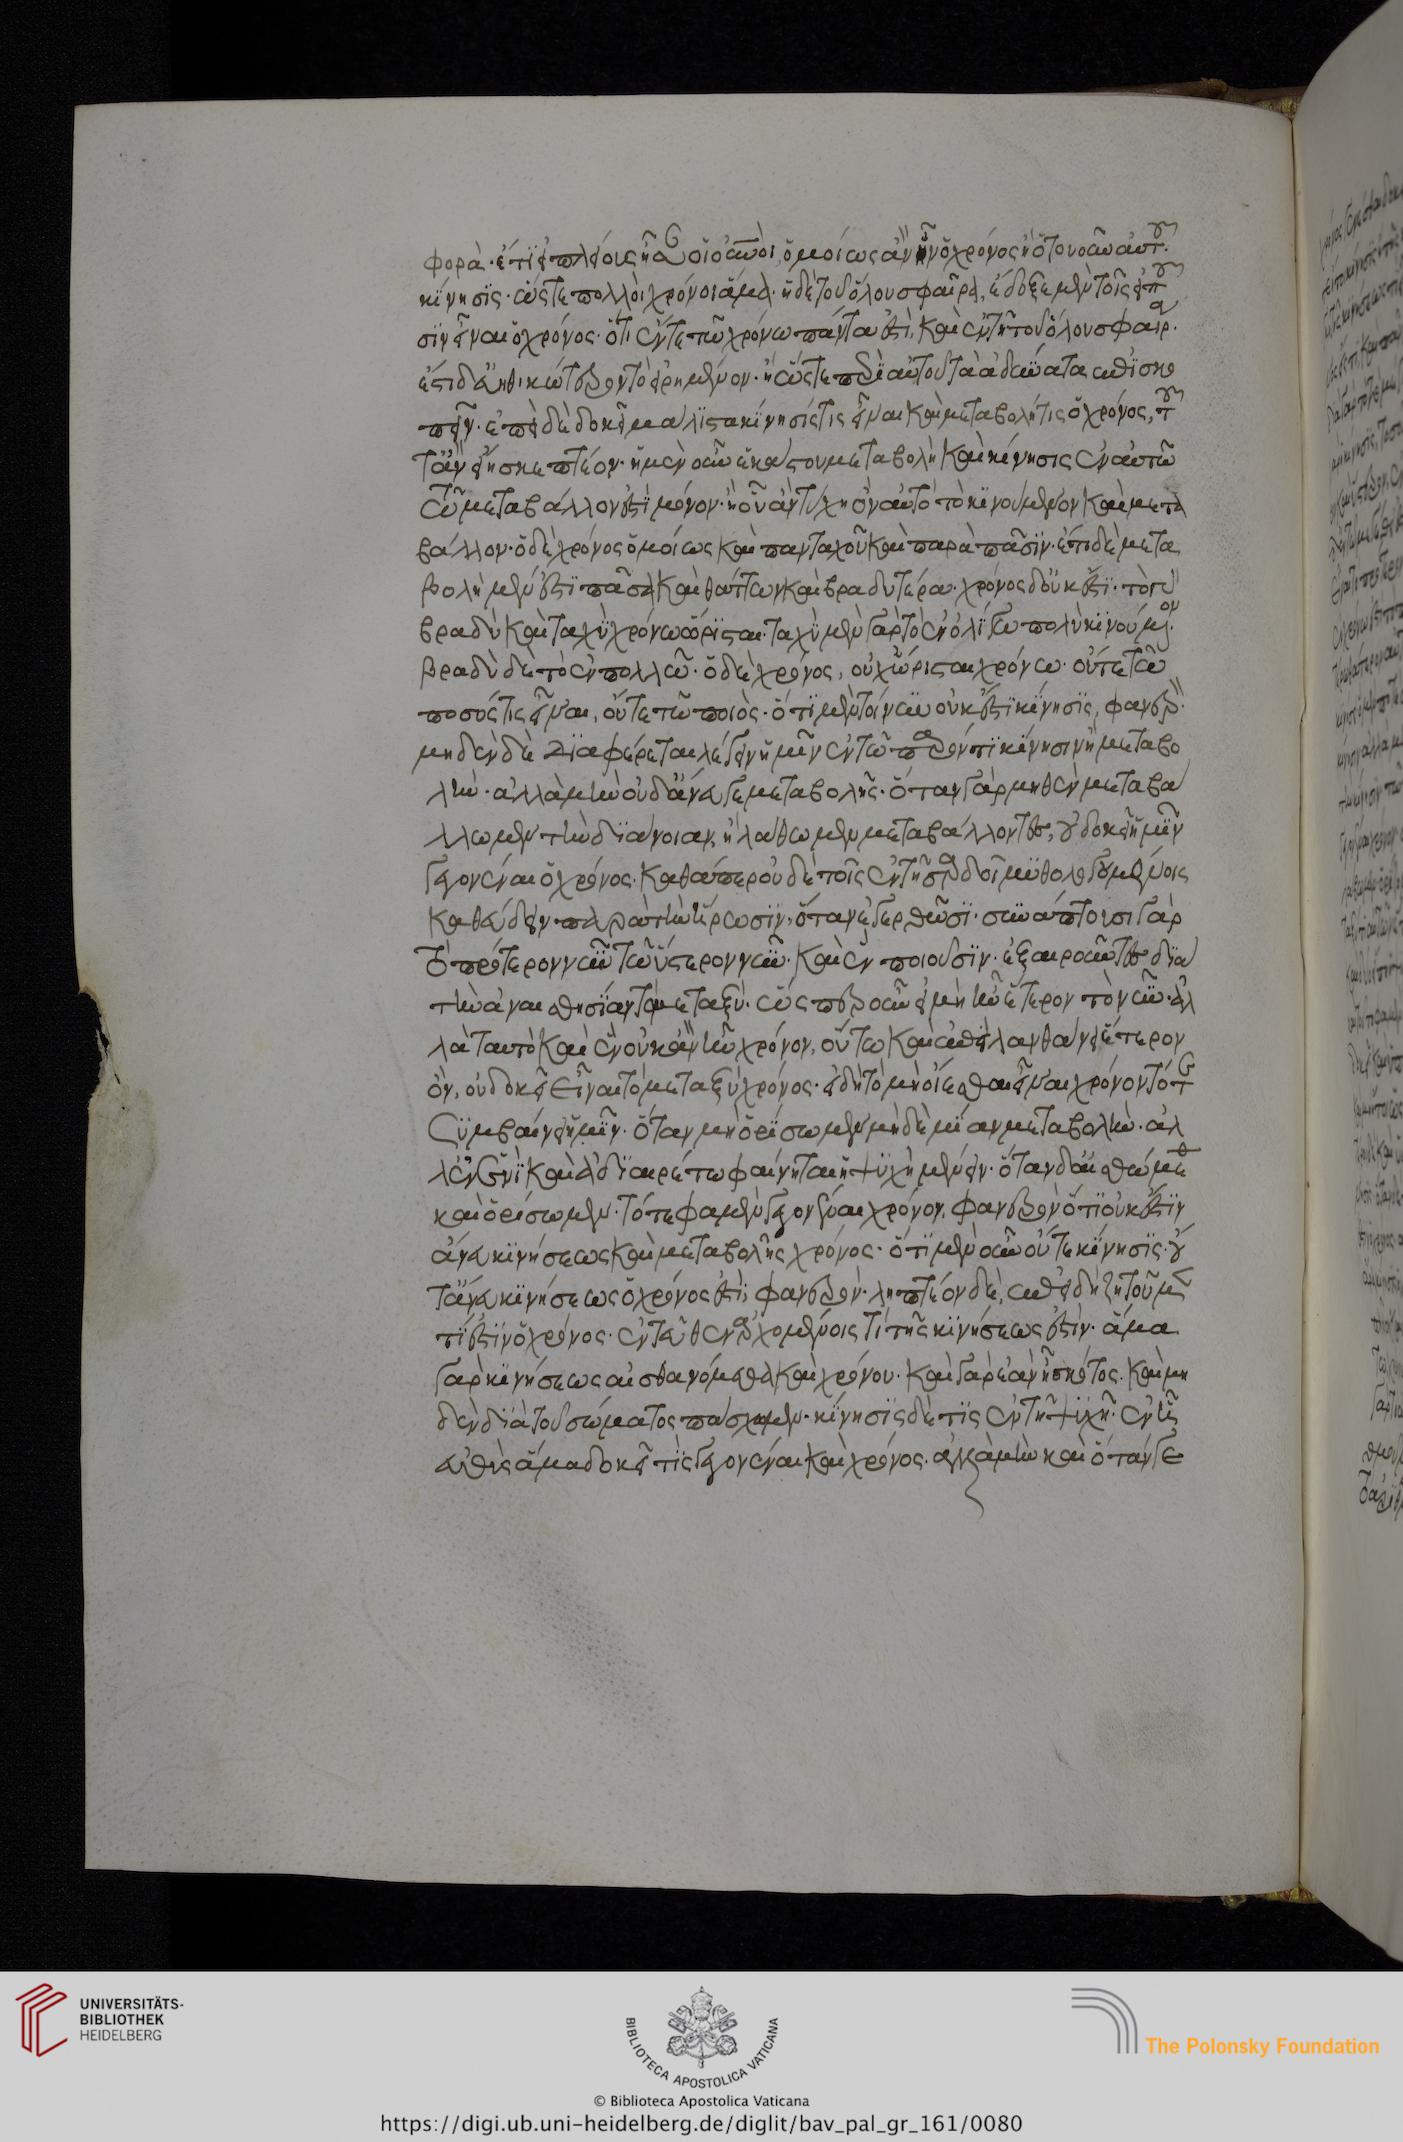 φορὰ· ἔτι εἰ πλείους ἦσαν οἱ οὐρανοὶ, ὁμοίως ἂν ἦν ὁ χρόνος ἡ ὁτουοῦν αὐτῶν
κίνησις· ὥστε πολλοὶ χρόνοι ἅμα· ἡ δὲ τοῦ ὅλου σφαῖρα, ἔδοξε μὲν τοῖς εἰποῦ
σιν εἶναι ὁ χρόνος· ὅτι ἔν τε τῷ χρόνω πάντα ἐστὶ, καὶ ἐν τῇ τοῦ ὅλου σφαίρα·
ἔστι δ' εὐηθικώτερον τὸ εἰρημένον· ἢ ὥστε περὶ αὐτοῦ τὰ ἀδύνατα ἐπισκο
πεῖν· ἐπεὶ δὲ δοκεῖ μάλιστα κίνησίς τις εἶναι καὶ μεταβολή τις ὁ χρόνος, τοῦ
τ' ἂν εἴη σκεπτέον· ἡ μὲν οὖν ἑκάστου μεταβολὴ καὶ κίνησις ἐν αὐτῶ
τῶ μεταβάλλοντι ἐστὶ μόνον· ἢ οὗ ἂν τύχη ὂν αὐτὸ τὸ κινούμενον καὶ μετα
βάλλον· ὁ δὲ χρόνος ὁμοίως καὶ πανταχοῦ καὶ παρὰ πᾶσιν· ἔτι δὲ μετα
βολὴ μέν ἐστι πᾶσα καὶ θάττων καὶ βραδυτέρα· χρόνος δ' οὐκ ἔστι· τὸ γὰρ
βραδὺ καὶ ταχὺ χρόνω ὥρισται· ταχὺ μὲν γὰρ τὸ ἐν ὀλίγω πολὺ κινούμενον·
βραδὺ δὲ τὸ ἐν πολλῶ· ὁ δὲ χρόνος, οὐχ ὥρισται χρόνω· οὔτε τῶ
ποσός τις εἶναι, οὔτε τῶ ποιός· ὅτι μὲν τοίνυν οὐκ ἔστι κίνησις, φανερόν·
μηδὲν δὲ διαφερέτω λέγειν ἡμῖν ἐν τῶ παρόντι κίνησιν ἢ μεταβο
λήν· ἀλλὰ μὴν οὐδ' ἄνευ γε μεταβολῆς· ὅταν γὰρ μηθὲν μεταβά
λλωμεν τὴν διάνοιαν, ἢ λάθωμεν μεταβάλλοντες, οὐ δοκεῖ ἡμῖν
γεγονέναι ὁ χρόνος· καθάπερ οὐδὲ τοῖς ἐν τῇ σαρδοῖ μυθολογουμένοις
καθεύδειν παρὰ τοῖς ἥρωσιν, ὅταν ἐγερθῶσι· συνάπτουσι γὰρ
τὸ πρότερον νῦν τῶ ὕστερον νῦν· καὶ ἓν ποιοῦσιν· ἐξαιροῦντες διὰ
τὴν ἀναισθησίαν τὸ μεταξύ· ὥσπερ οὖν εἰ μὴ ἦν ἕτερον τὸ νῦν· ἀλ
λὰ ταυτὸ καὶ ἓν οὐκ ἂν ἦν χρόνον, οὕτω καὶ ἐπεὶ λανθάνει ἕτερον
ὂν, οὐ δοκεῖ εἶναι τὸ μεταξὺ χρόνος· εἰ δὴ τὸ μὴ οἴεσθαι εἶναι χρόνον τότε
συμβαίνει ἡμῖν· ὅταν μὴ ὁρίσωμεν μηδὲ μίαν μεταβολήν· ἀλ
λ' ἐν ἑνὶ καὶ ἀδιαιρέτω φαίνηται ἡ ψυχὴ μένειν· ὅταν δ' αἰσθώμεθα
καὶ ὁρίσωμεν· τότε φαμὲν γεγονέναι χρόνον, φανερὸν ὅτι οὐκ ἔστιν
ἄνευ κινήσεως καὶ μεταβολῆς χρόνος· ὅτι μὲν οὖν οὔτε κίνησις· οὔ
τ' ἄνευ κινήσεως ὁ χρόνος ἐστὶ, φανερόν· ληπτέον δὲ, ἐπεὶ δὴ ζητοῦμεν
τί ἐστιν ὁ χρόνος· ἐντεῦθεν ἀρχομένοις τί τῆς κινήσεως ἐστίν· ἅμα
γὰρ κινήσεως αἰσθανόμεθα καὶ χρόνου· καὶ γὰρ ἐὰν ἦ σκότος· καὶ μη
δὲν διὰ τοῦ σώματος πάσχωμεν· κίνησις δέ τις ἐν τῇ ψυχῇ· ἐνῇ
εὐθὺς ἅμα δοκεῖ τὶς γεγονέναι καὶ χρόνος· ἀλλὰ μὴν καὶ ὅταν γε
UNIVERSITÄTS-
BIBLIOTHEK
HEIDELBERG
BIBLIOTECA APOSTOLICA VATICANA
The Polonsky Foundation
© Biblioteca Apostolica Vaticana
https://digi.ub.uni-heidelberg.de/diglit/bav_pal_gr_161/0080